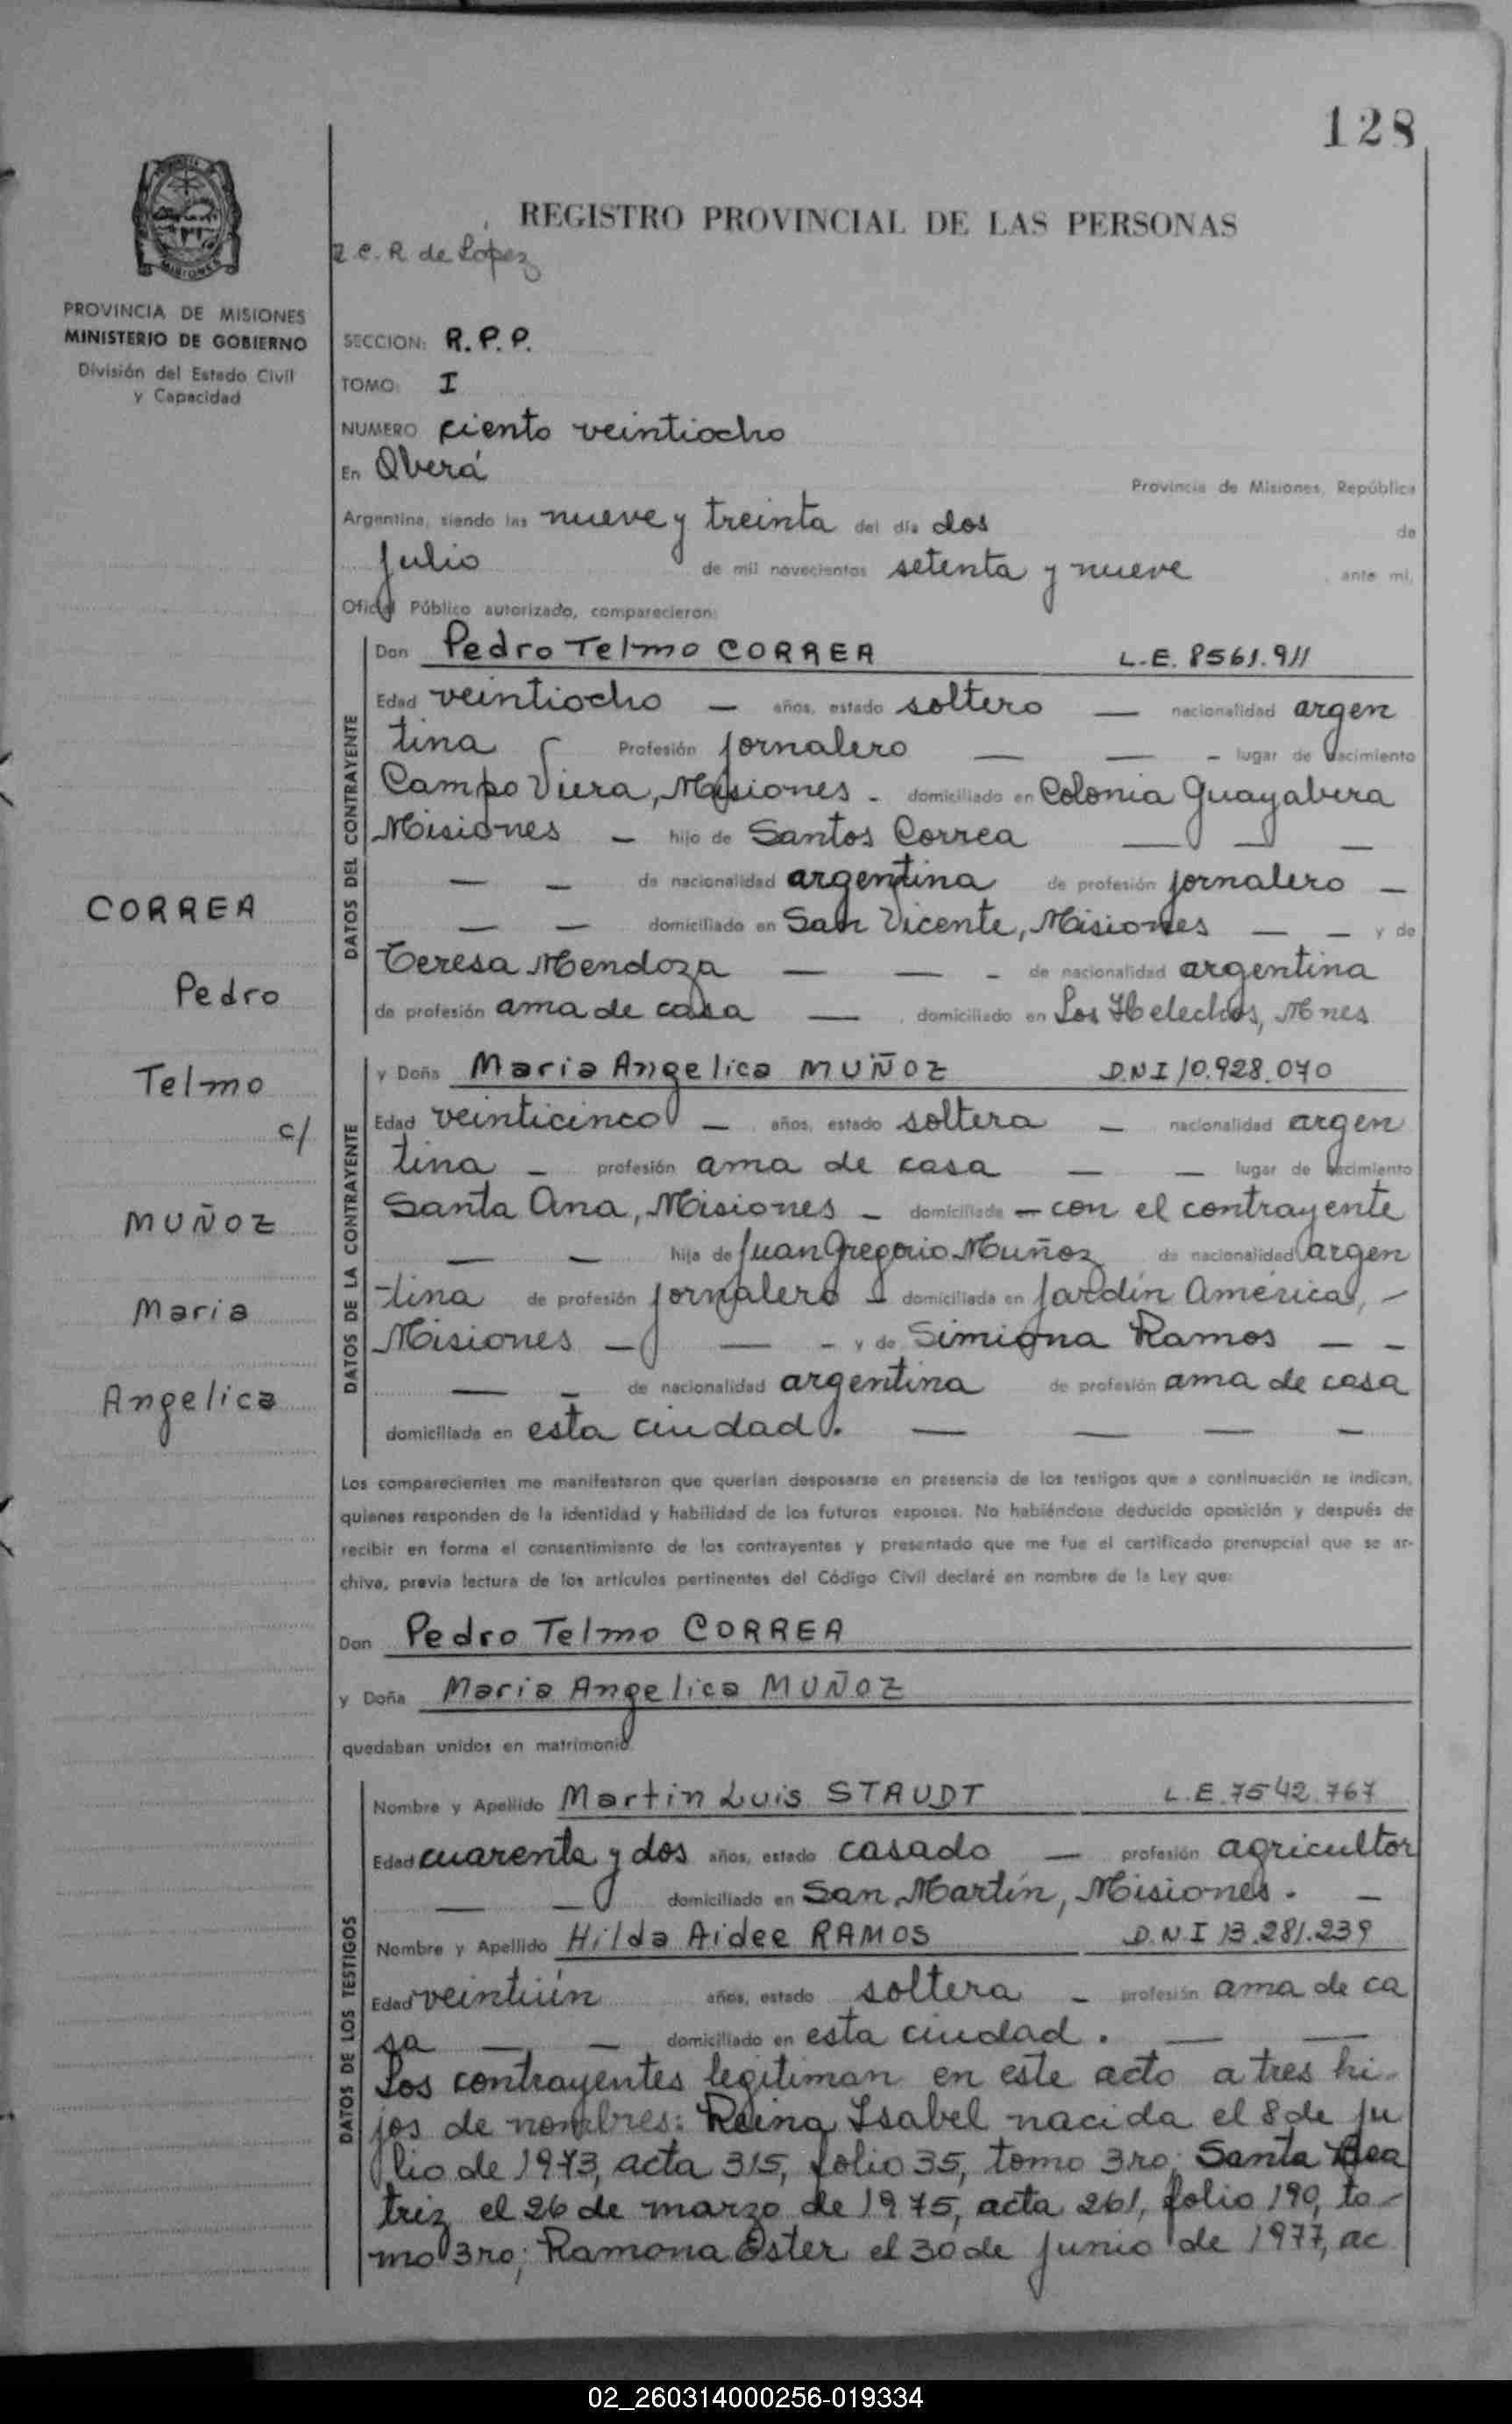 128
REGISTRO PROVINCIAL DE LAS PERSONAS
R. de López
MISIONES
PROVINCIA DE MISIONES
MINISTERIO DE GOBIERNO
División del Estado Civil
y Capacidad
SECCION: R.P.P.
TOMO: I
NUMERO ciento veintiocho
En Oberá
Provincia de Misiones, República
Argentina, siendo las nueve y treinta del día dos de
julio de mil novecientos setenta y nueve ante mi,
Oficial Público autorizado, comparecieron:
DATOS DEL CONTRAYENTE
Don Pedro Telmo CORREA L.E. 8561.911
Edad veintiocho — años, estado soltero — nacionalidad argen
tina - Profesión jornalero — — - lugar de nacimiento
Campo Viera, Misiones - domiciliado en Colonia Guayabera
Misiones — hijo de Santos Correa — — —
— — de nacionalidad argentina de profesión jornalero —
— — domiciliado en San Vicente, Misiones — — y de
Teresa Mendoza — — - de nacionalidad argentina
de profesión ama de casa — , domiciliado en Los Helechos, Mnes
DATOS DE LA CONTRAYENTE
y Doña Maria Angelica MUÑOZ D.N.I 10.928.070
Edad veinticinco — años, estado soltera — nacionalidad argen
tina - profesión ama de casa — — lugar de nacimiento
Santa Ana, Misiones - domiciliada — con el contrayente
— — hija de Juan Gregorio Muñoz de nacionalidad argen
tina de profesión jornalero - domiciliada en Jardín América, -
Misiones — — - y de Simiona Ramos — -
— - de nacionalidad argentina de profesión ama de casa
domiciliada en esta ciudad. — — — —
CORREA
Pedro
Telmo
c/
MUÑOZ
Maria
Angelica
Los comparecientes me manifestaron que querían desposarse en presencia de los testigos que a continuación se indican,
quienes responden de la identidad y habilidad de los futuros esposos. No habiéndose deducido oposición y después de
recibir en forma el consentimiento de los contrayentes y presentado que me fue el certificado prenupcial que se ar-
chiva, previa lectura de los artículos pertinentes del Código Civil declaré en nombre de la Ley que:
Don Pedro Telmo CORREA
y Doña Maria Angelica MUÑOZ
quedaban unidos en matrimonio
DATOS DE LOS TESTIGOS
Nombre y Apellido Martin Luis STAUDT L.E. 7542.767
Edad cuarenta y dos años, estado casado — profesión agricultor
— — domiciliado en San Martín, Misiones. —
Nombre y Apellido Hilda Aidee RAMOS D.N.I 13.281.239
Edad veintiún años, estado soltera - profesión ama de ca
sa — — domiciliado en esta ciudad. — —
Los contrayentes legitiman en este acto a tres hi-
jos de nombres: Reina Isabel nacida el 8 de ju
lio de 1973, acta 315, folio 35, tomo 3ro; Santa Bea
triz el 26 de marzo de 1975, acta 261, folio 190, to-
mo 3ro; Ramona Ester el 30 de junio de 1977, ac
02_260314000256-019334